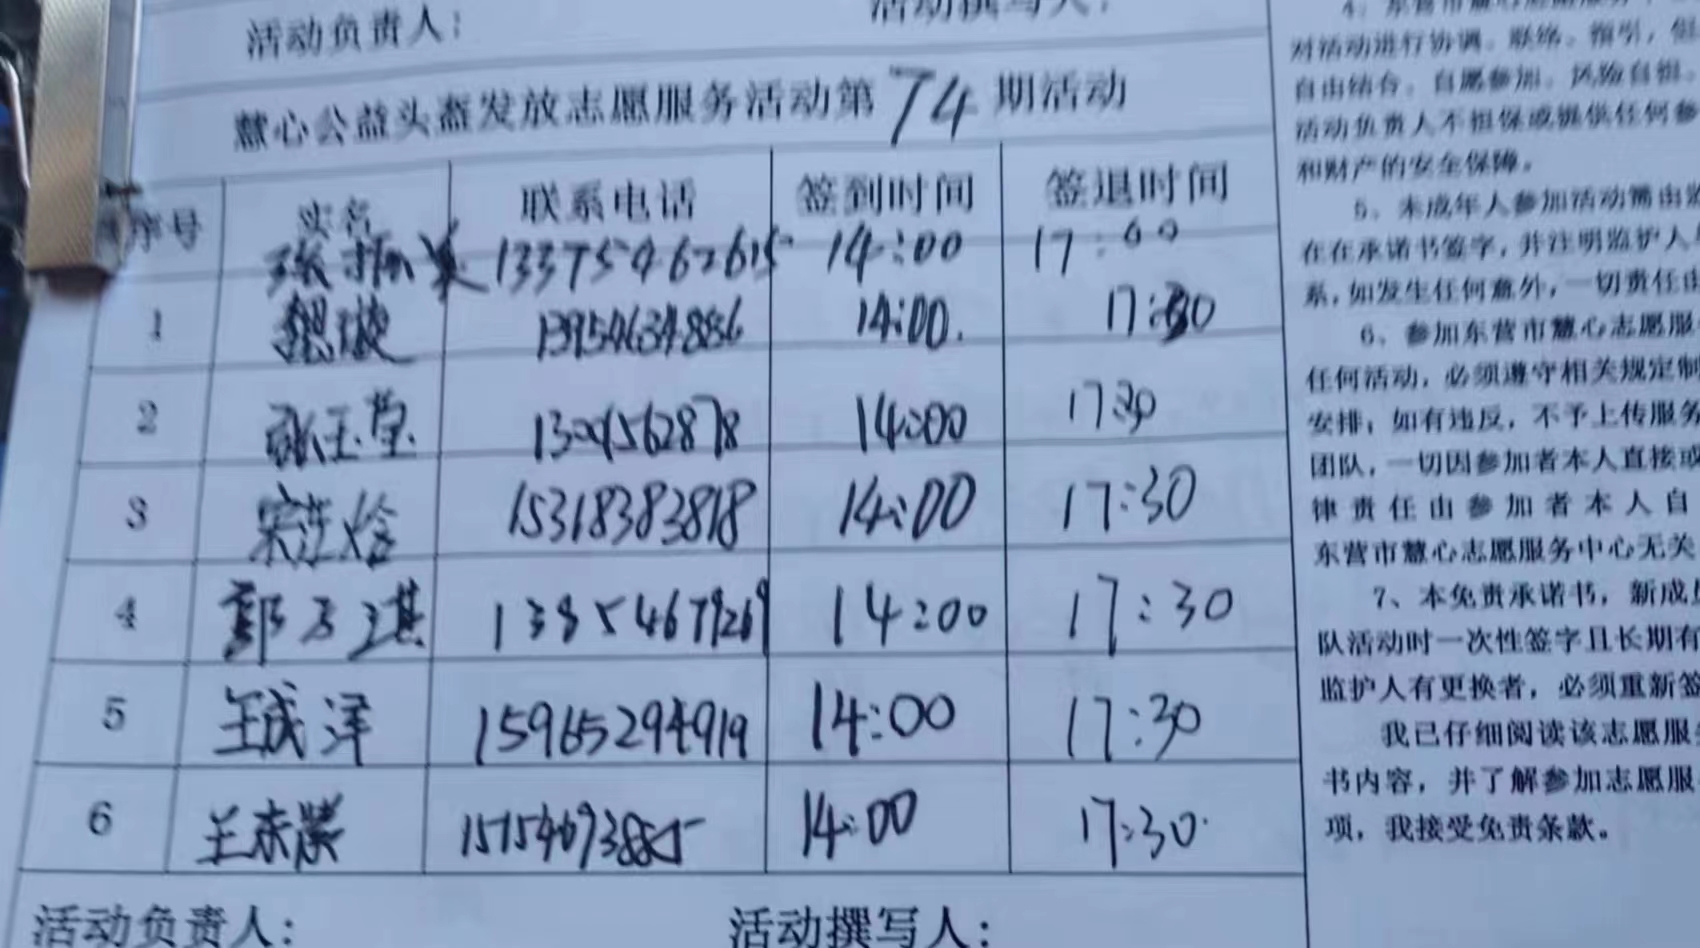 活动负责人：
活动撰写人：
慧心公益头盔发放志愿服务活动第74期活动
序号 实名 联系电话 签到时间 签退时间
张振美 13375462615 14:00 17:00
1 魏璇 13954634886 14:00. 17:30
2 张玉莹 14:00 17:30
3 15318383818 14:00 17:30
4 14:00 17:30
5 王成泽 15965294919 14:00 17:30
6 王东 14:00 17:30
活动负责人：
活动撰写人：
对活动进行协调、联络、指引，但
自由结合、自愿参加、风险自担。
活动负责人不担保或提供任何参
和财产的安全保障。
5、未成年人参加活动需由监
在在承诺书签字，并注明监护人
系，如发生任何意外，一切责任由
6、参加东营市慧心志愿服
任何活动，必须遵守相关规定制
安排；如有违反，不予上传服务
团队，一切因参加者本人直接或
律责任由参加者本人自
东营市慧心志愿服务中心无关
7、本免责承诺书，新成员
队活动时一次性签字且长期有
监护人有更换者，必须重新签
我已仔细阅读该志愿服
书内容，并了解参加志愿服
项，我接受免责条款。